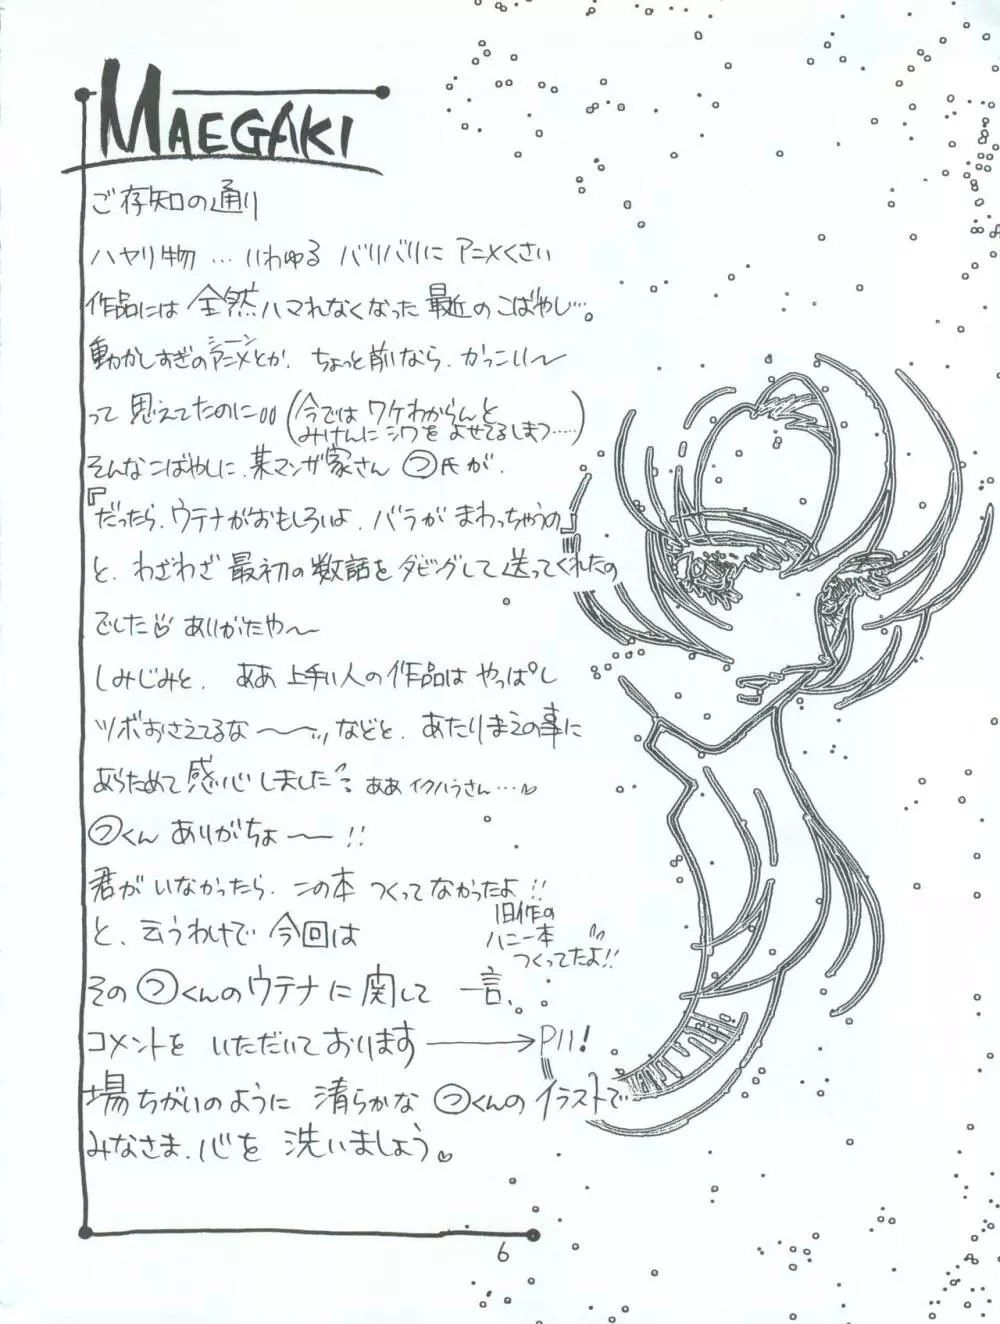 MAEGAKI
ご存知の通り
ハヤリ物…いわゆる バリバリに アニメくさい
作品には 全然ハマれなくなった 最近の こばやし…。
シーン
動かしすぎのアニメとか、ちょっと前なら、かっこいい〜
って 思えてたのに(今では ワケわからんと
みけんに シワを よせてるしまつ……)
そんなこばやしに、某マンガ家さん つ氏が、
『だったら、ウテナがおもしろいよ、バラが まわっちゃうの』
と、わざわざ 最初の数話を ダビングして 送ってくれたの
でした ありがたや〜
しみじみと、 ああ 上手い人の作品は やっぱし
ツボおさえてるな〜〜 などと、あたりまえの事に
あらためて 感心しました ああ イクハラさん…♡
つくん ありがちょーー!!
君が いなかったら、この本 つくってなかったよ!!
旧作の
ハニー本
つくってたよ!!
と、云うわけで 今回は
その つくんのウテナに 関して 一言、
コメントを いただいて おります → P11!
場ちがいのように 清らかな つくんの イラストで
みなさま、心を 洗いましょう。♡
6